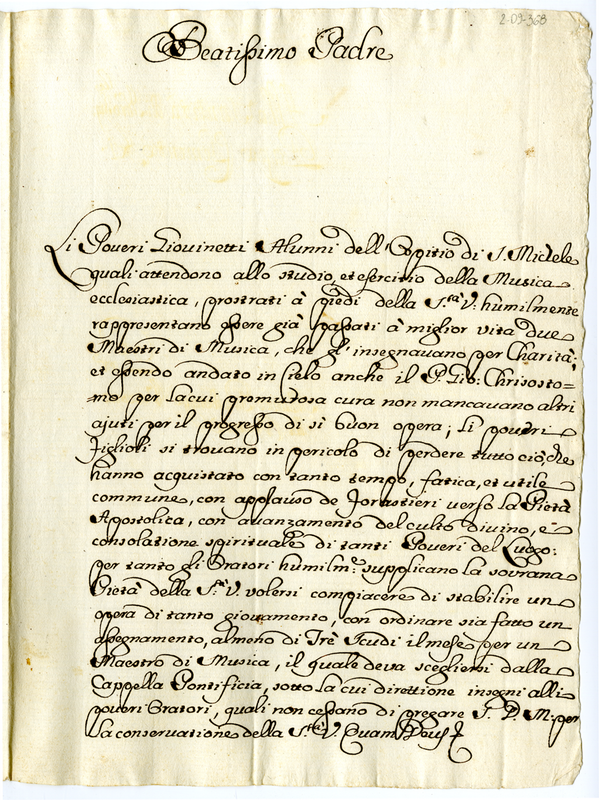 2-09-368
Beatissimo Padre
Li Poveri Giovinetti Alunni dell'Ospitio di S. Michele
quali attendono allo studio, et esercitio della Musica
ecclesiastica, prostrati à piedi della S.tà V. humilmente
rappresentano essere già passati à miglior vita due
Maestri di Musica, che gl'insegnavano per Charità;
et essendo andato in Cielo anche il P. Gio: Chrisosto=
=mo per la cui premurosa cura non mancavano altri
ajuti per il progresso di sì buon opera; Li poveri
figlioli si trovano in pericolo di perdere tutto ciò, che
hanno acquistato con tanto tempo, fatica, et utile
commune, con applauso de forastieri verso la Pietà
Apostolica, con avanzamento del culto divino, e
consolatione spirituale di tanti Poveri del Luogo:
per tanto gli Oratori humilm.e supplicano la sovrana
Pietà della S.tà V. volersi compiacere di stabilire un
opera di tanto giovamento, con ordinare sia fatto un
assegnamento, almeno di Trè Scudi il mese per un
Maestro di Musica, il quale deva scegliersi dalla
Cappella Pontificia, sotto la cui direttione insegni alli
poveri Oratori, quali non cessano di pregare S. D. M. per
la conservatione della S.tà V. Quam Deus